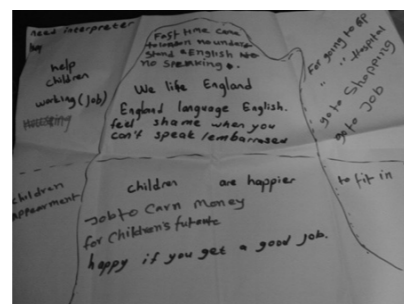 need interpreter
help
children
working (Job)
Fast time came
to London no under
stand & English
no speaking
We life England
England language English.
feel shame when you
can't speak/embarrased
For going to GP
" " Hospital
go to Shopping
go to Job
children
appearment
children are happier
Job to Carn Money
for Children's future
happy if you get a good job.
to fit in